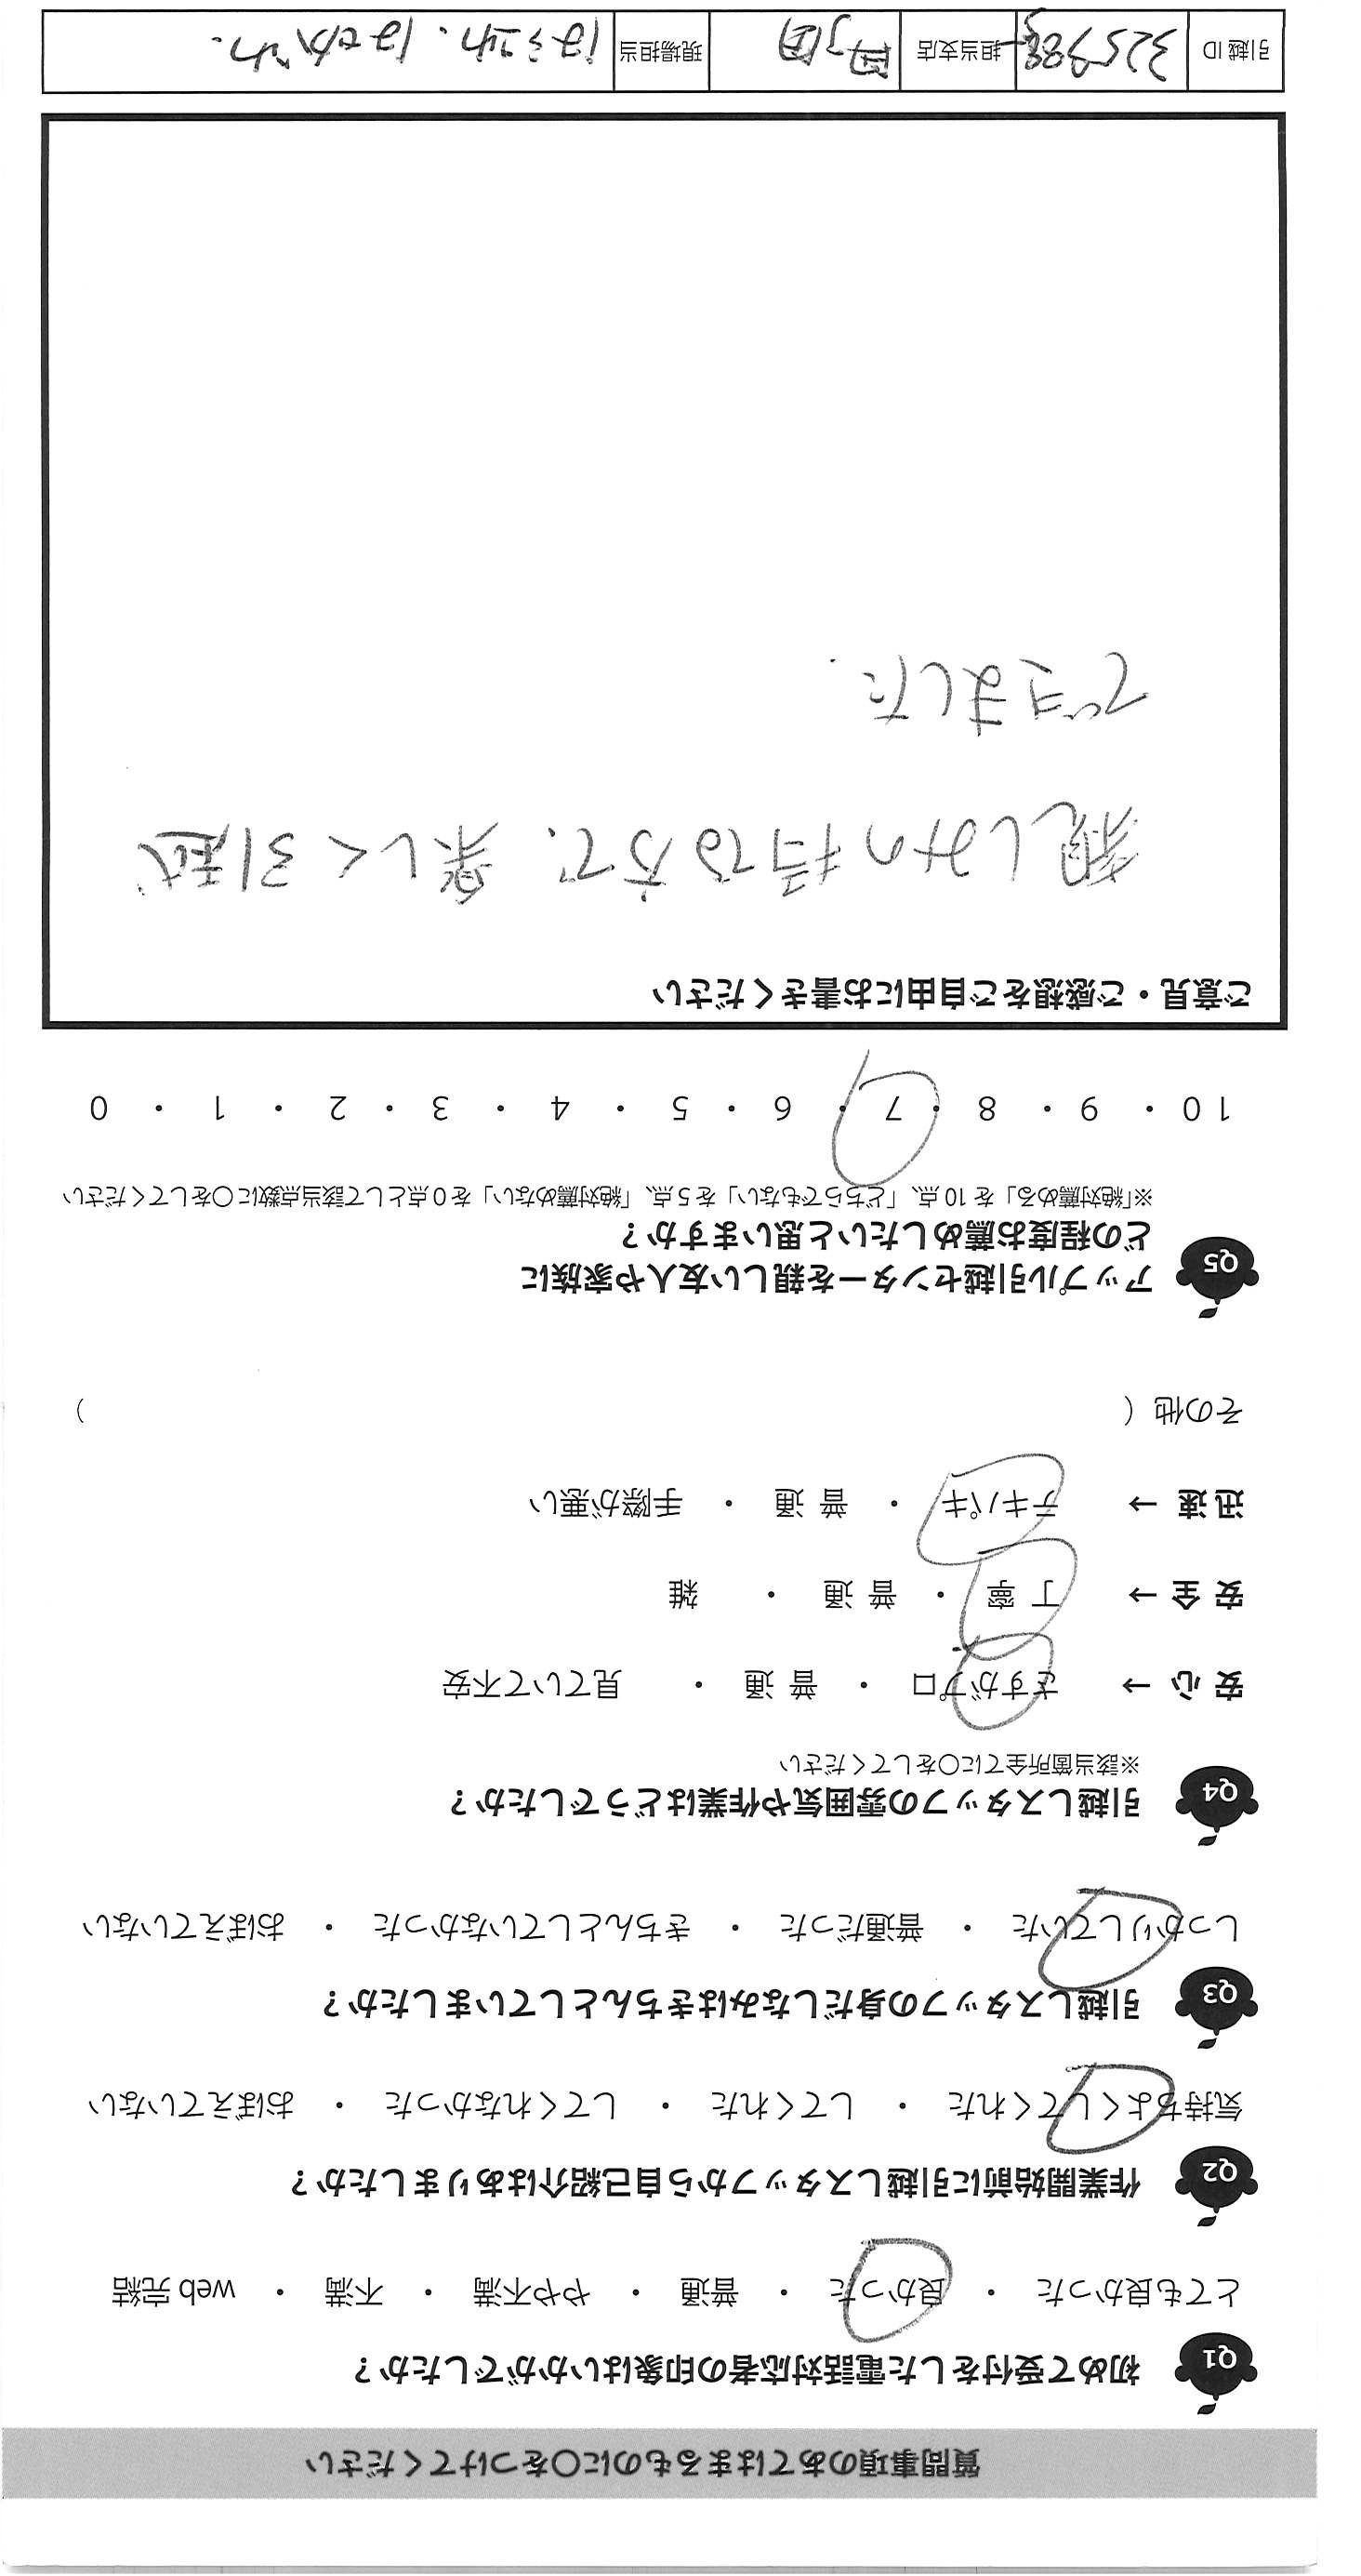 質問事項のあてはまるものに○をつけてください
Q1 初めて受付をした電話対応者の印象はいかがでしたか？
とても良かった ・ 良かった ・ 普通 ・ やや不満 ・ 不満 ・ web 完結
Q2 作業開始前に引越しスタッフから自己紹介はありましたか？
気持ちよくしてくれた ・ してくれた ・ してくれなかった ・ おぼえていない
Q3 引越しスタッフの身だしなみはきちんとしていましたか？
しっかりしていた ・ 普通だった ・ きちんとしていなかった ・ おぼえていない
Q4 引越しスタッフの雰囲気や作業はどうでしたか？
※該当箇所全てに○をしてください
安 心 → さすがプロ ・ 普 通 ・ 見ていて不安
安 全 → 丁 寧 ・ 普 通 ・ 雑
迅 速 → テキパキ ・ 普 通 ・ 手際が悪い
その他（ ）
Q5 アップル引越センターを親しい友人や家族に
どの程度お薦めしたいと思いますか？
※「絶対薦める」を 10 点、「どちらでもない」を 5 点、「絶対薦めない」を 0 点として該当点数に○をしてください
10 ・ 9 ・ 8 ・ 7 ・ 6 ・ 5 ・ 4 ・ 3 ・ 2 ・ 1 ・ 0
ご意見・ご感想をご自由にお書きください
親しみの持てる方で、楽しく引越が
できました.
引越 ID 担当支店 現場担当